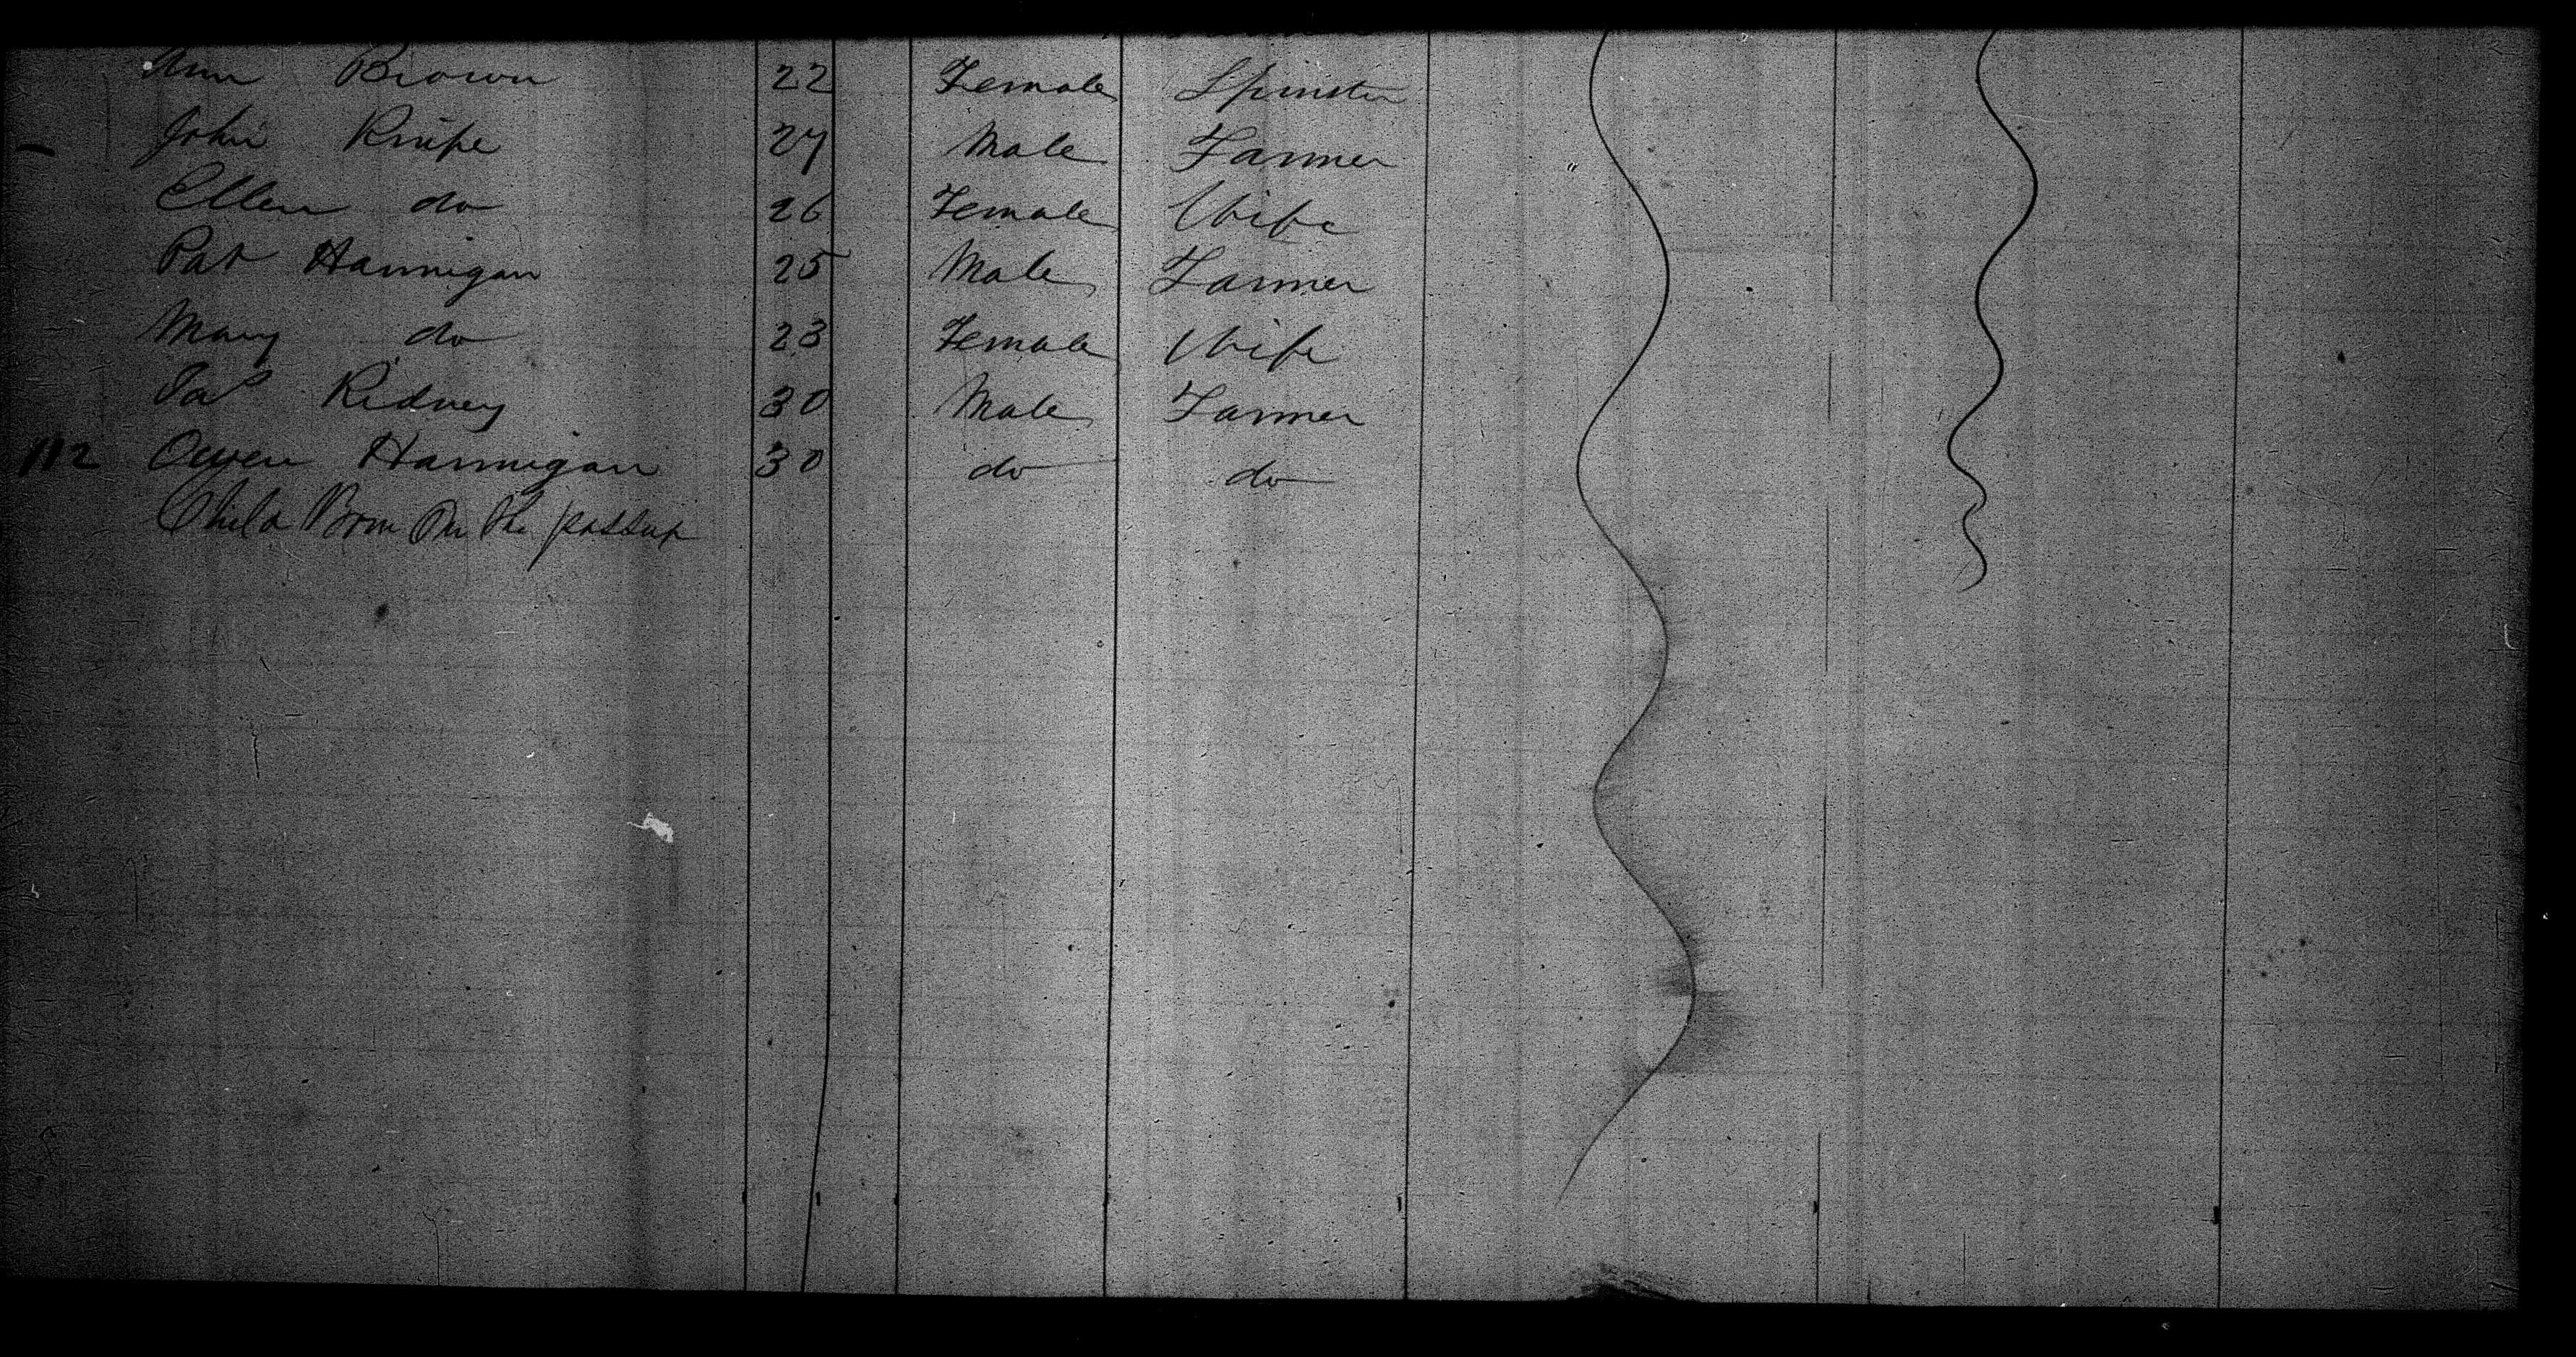 Ann Brown 22 Female Spinster
John Knipe 27 Male Farmer
Ellen do 26 Female Wife
Pat Hannigan 25 Male Farmer
Mary do 23 Female Wife
Jas Kidney 30 Male Farmer
112 Owen Hannigan 30 do do
Child Born On the passage